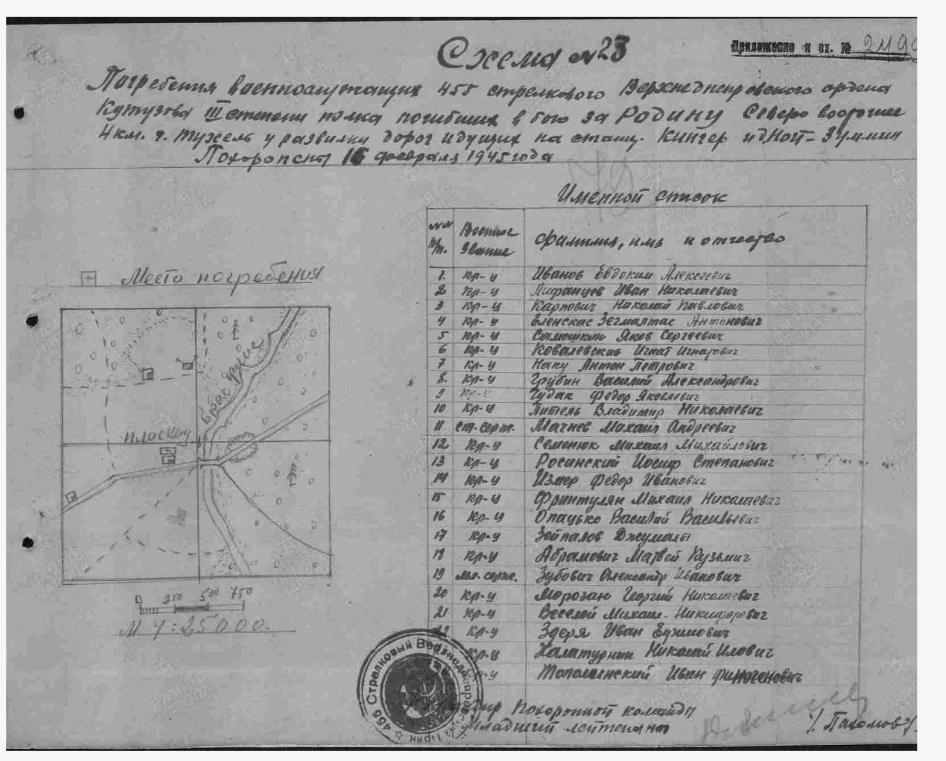 Схема №23
Приложение к вх. №
Погребения военнослужащих 455 стрелкового Верхнеднепровского ордена
Кутузова III степени полка погибших в бою за Родину Северо восточнее
4 км. д. Тужель у развилки дорог идущих на станц. Кингер и д. Ной-Зуммин
Похоронены 16 февраля 1945 года
Именной список
№№ п/п. Военное звание фамилия, имя и отчество
Место погребения
1. кр-ц Иванов Евдоким Алексеевич
2 кр-ц Лифанцев Иван Николаевич
3 кр-ц Карпович Николай Павлович
4 кр-ц Еленскас Антонович
5 кр-ц Яков Сергеевич
6 кр-ц Ковалевский Игнат Игнатович
7 кр-ц Наку Антон Петрович
8. кр-ц Грубин Василий Александрович
9 кр-ц Чудак Федор Яковлевич
10 кр-ц Титель Владимир Николаевич
11 ст-серж. Мачнев Михаил Андреевич
12 кр-ц Семенюк Михаил Михайлович
13 кр-ц Росинский Иосиф Степанович
14 кр-ц Измер Федор Иванович
15 кр-ц Фринтулян Михаил Николаевич
16 кр-ц Опацько Василий Васильевич
17 кр-ц Зейпалов Джумалы
18 кр-ц Абрамович Матвей Кузьмич
19 мл. серж. Зубович Александр Иванович
20 кр-ц Морозан Георгий Николаевич
21 кр-ц Веселой Михаил Никифорович
кр-ц Здеря Иван Ефимович
кр-ц Халатурник Николай Илович
кр-ц Тополенский Иван Финогенович
Пласкау
0 250 500 750
М 1:25000.
455 Стрелковый
Похоронной команды
Младший лейтенант
/. Пахомов /.